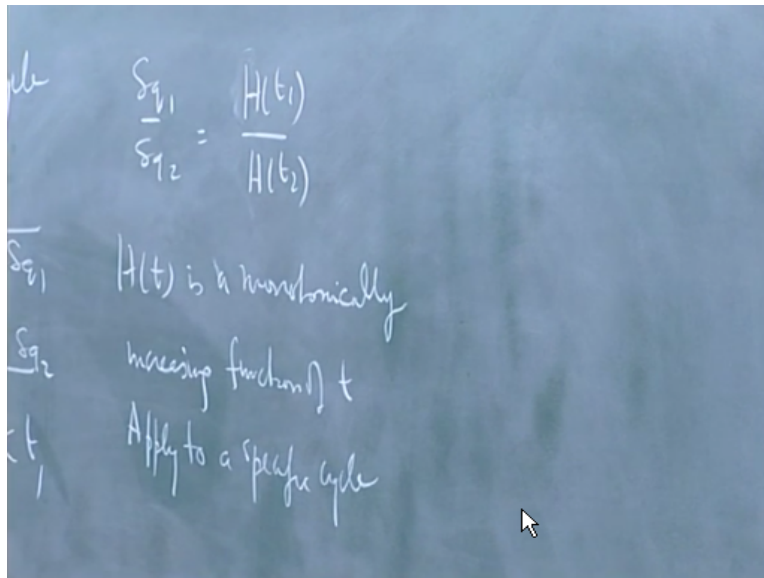 δq₁ / δq₂ = H(t₁) / H(t₂)
δq₁
H(t) is a monotonically
δq₂
increasing function of t
t₁
Apply to a specific cycle